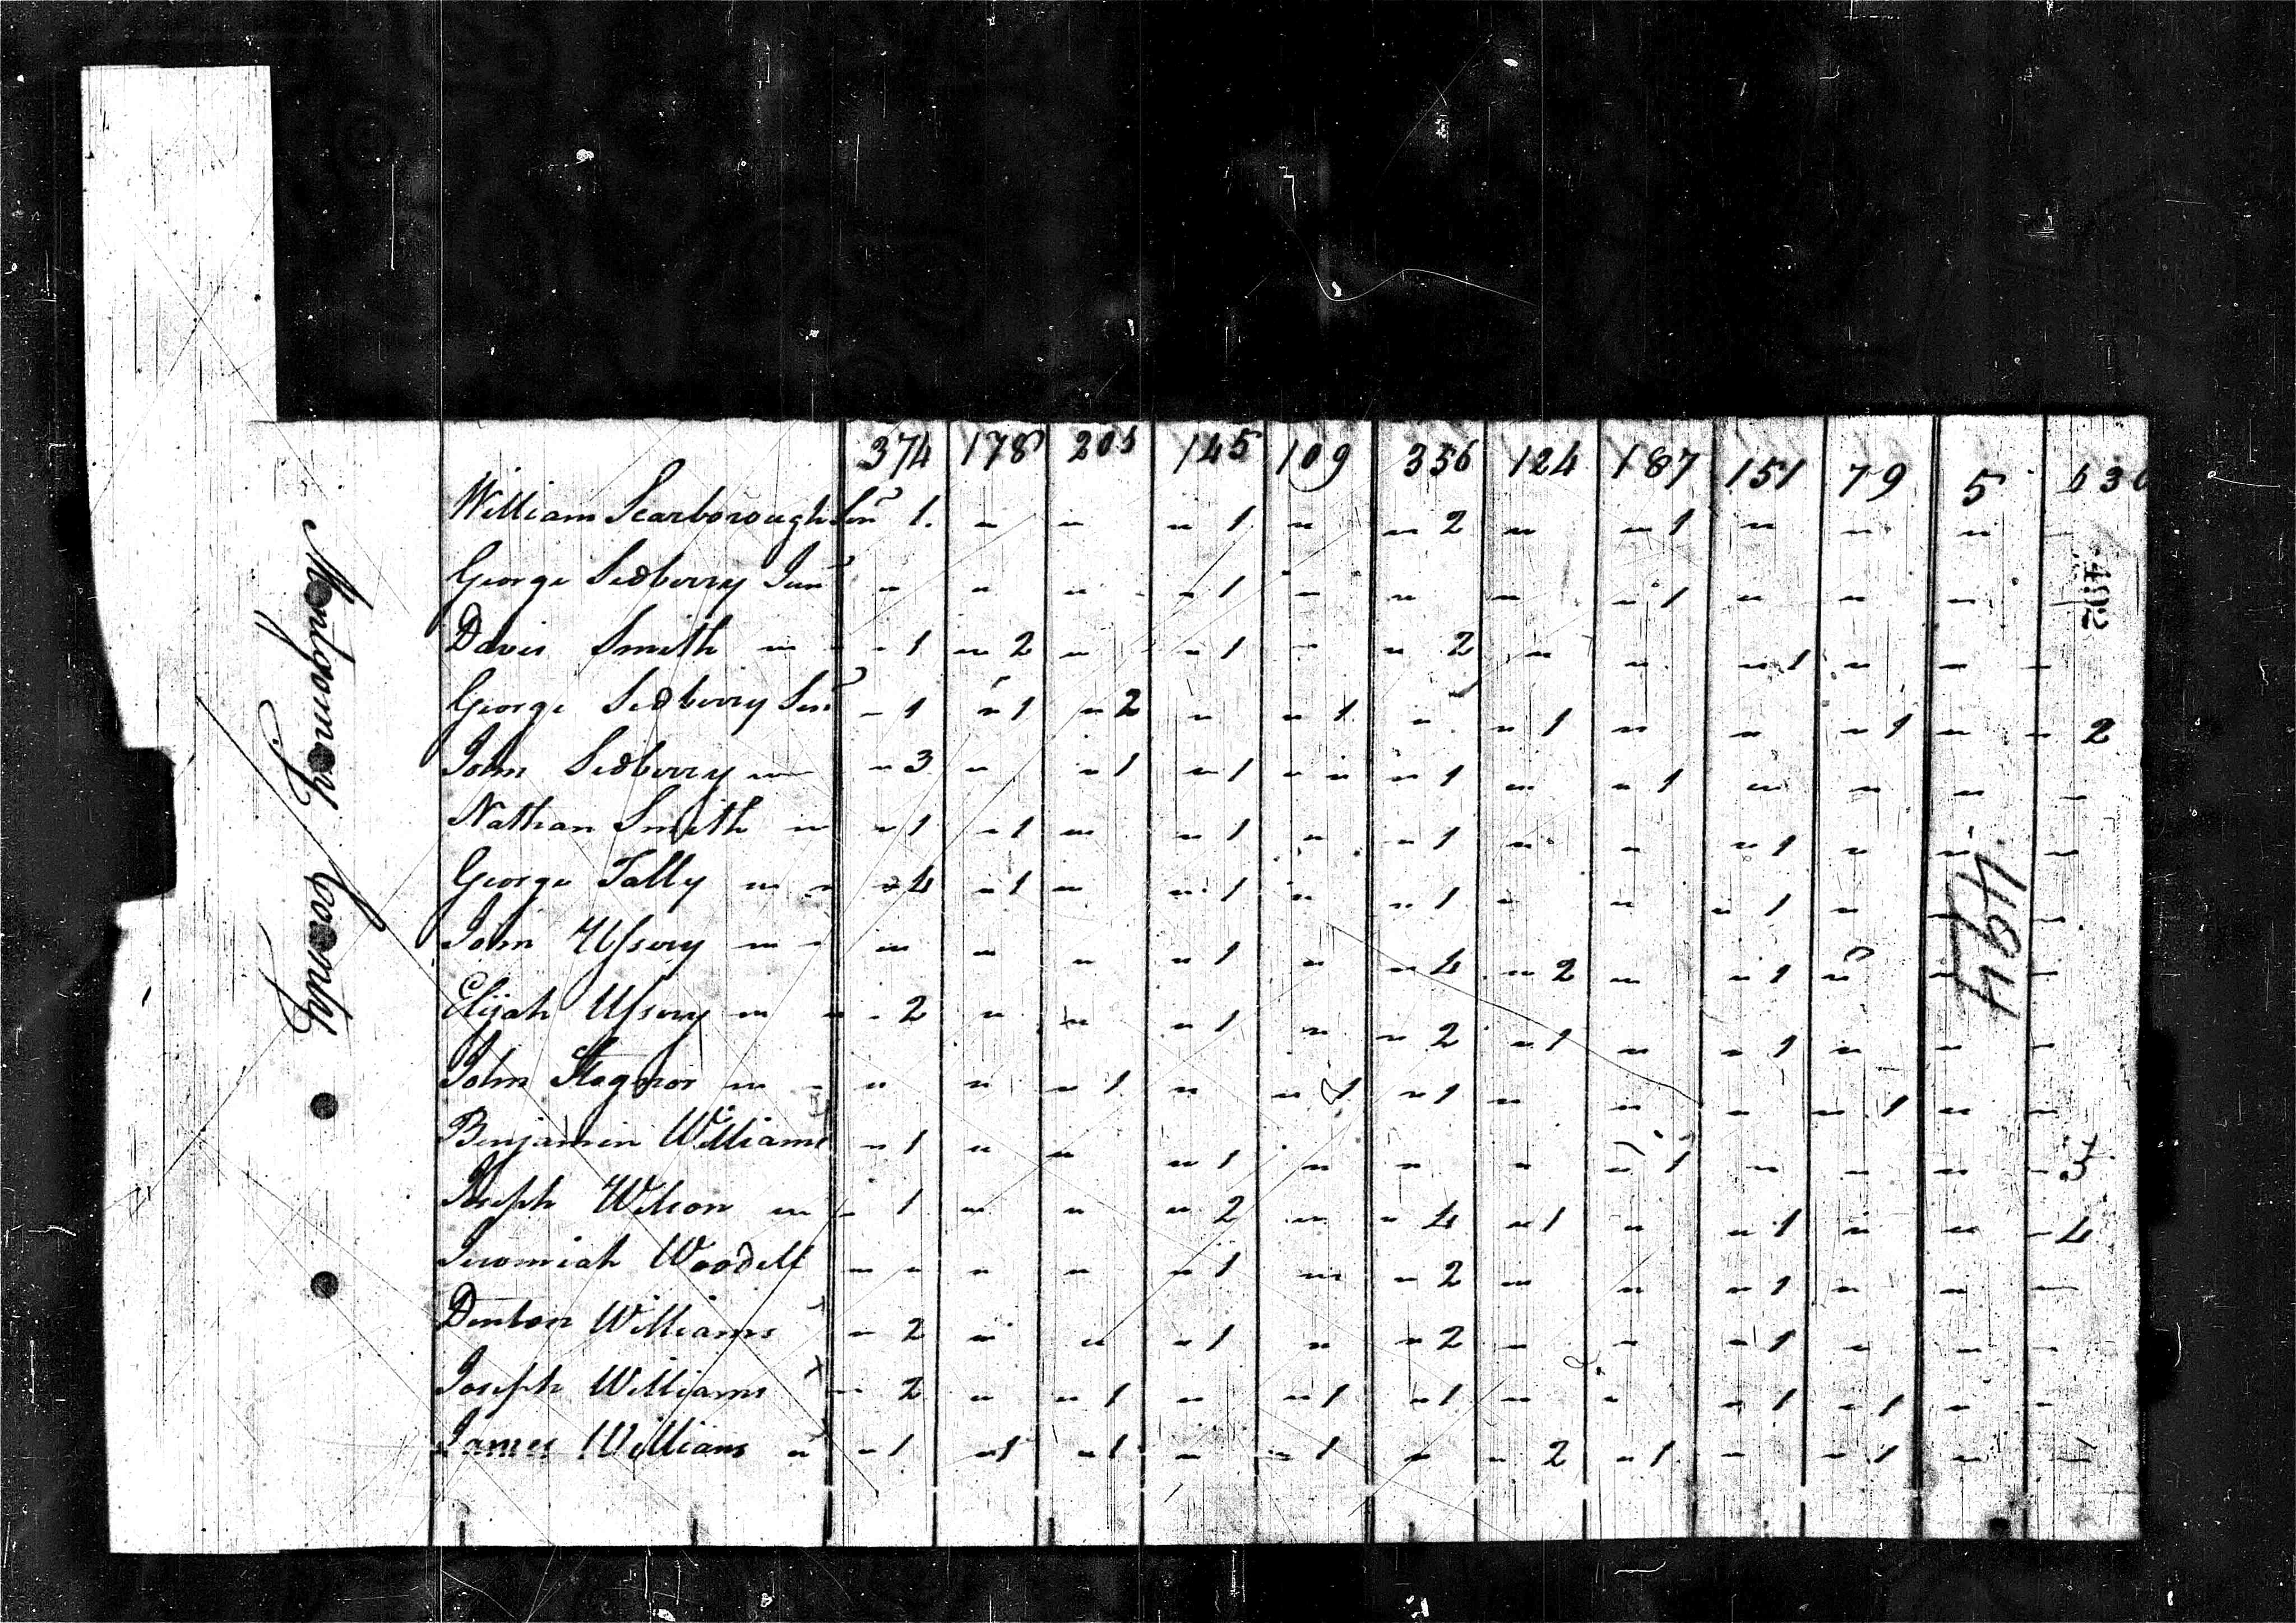 Montgomery County
374 178 201 145 109 356 124 187 151 79 5 636
William Scarborough Senr 1. " " " 1 " " 2 " " 1 " " " "
George Sedberry Junr " " " " 1 " " " " 1 " " " "
Davis Smith " " 1 " 2 " " 1 " " 2 " " " 1 " " "
George Sedberry Senr " 1 " 1 " 2 " " 1 " " 1 " " " 1 " " 2
John Sedberry " " 3 " " 1 " 1 " " " 1 " " 1 " " " "
Nathan Smith " " 1 " 1 " " 1 " " 1 " " " 1 " " "
George Tally " " " 4 " 1 " " 1 " " 1 " " " 1 " " "
John Ussery " " " " " " 1 " " 4 " 2 " " 1 " " "
Elijah Ussery " " " 2 " " " 1 " " 2 " 1 " " 1 " " "
John Stagnor " " " " " 1 " " 1 " 1 " " " " 1 " "
Benjamin Williams " 1 " " " 1 " " " " 1 " " " " 3
Joseph Wilson " " 1 " " " 2 " " 4 " 1 " " 1 " " " 4
Jeremiah Woodell " " " " " 1 " " 2 " " " 1 " " "
Denton Williams " 2 " " " 1 " " 2 " " " 1 " " "
Joseph Williams " 2 " " 1 " " 1 " 1 " " " 1 " 1 " "
James Williams " " 1 " 1 " 1 " " 1 " " 2 " 1 " " 1 " "
402
494